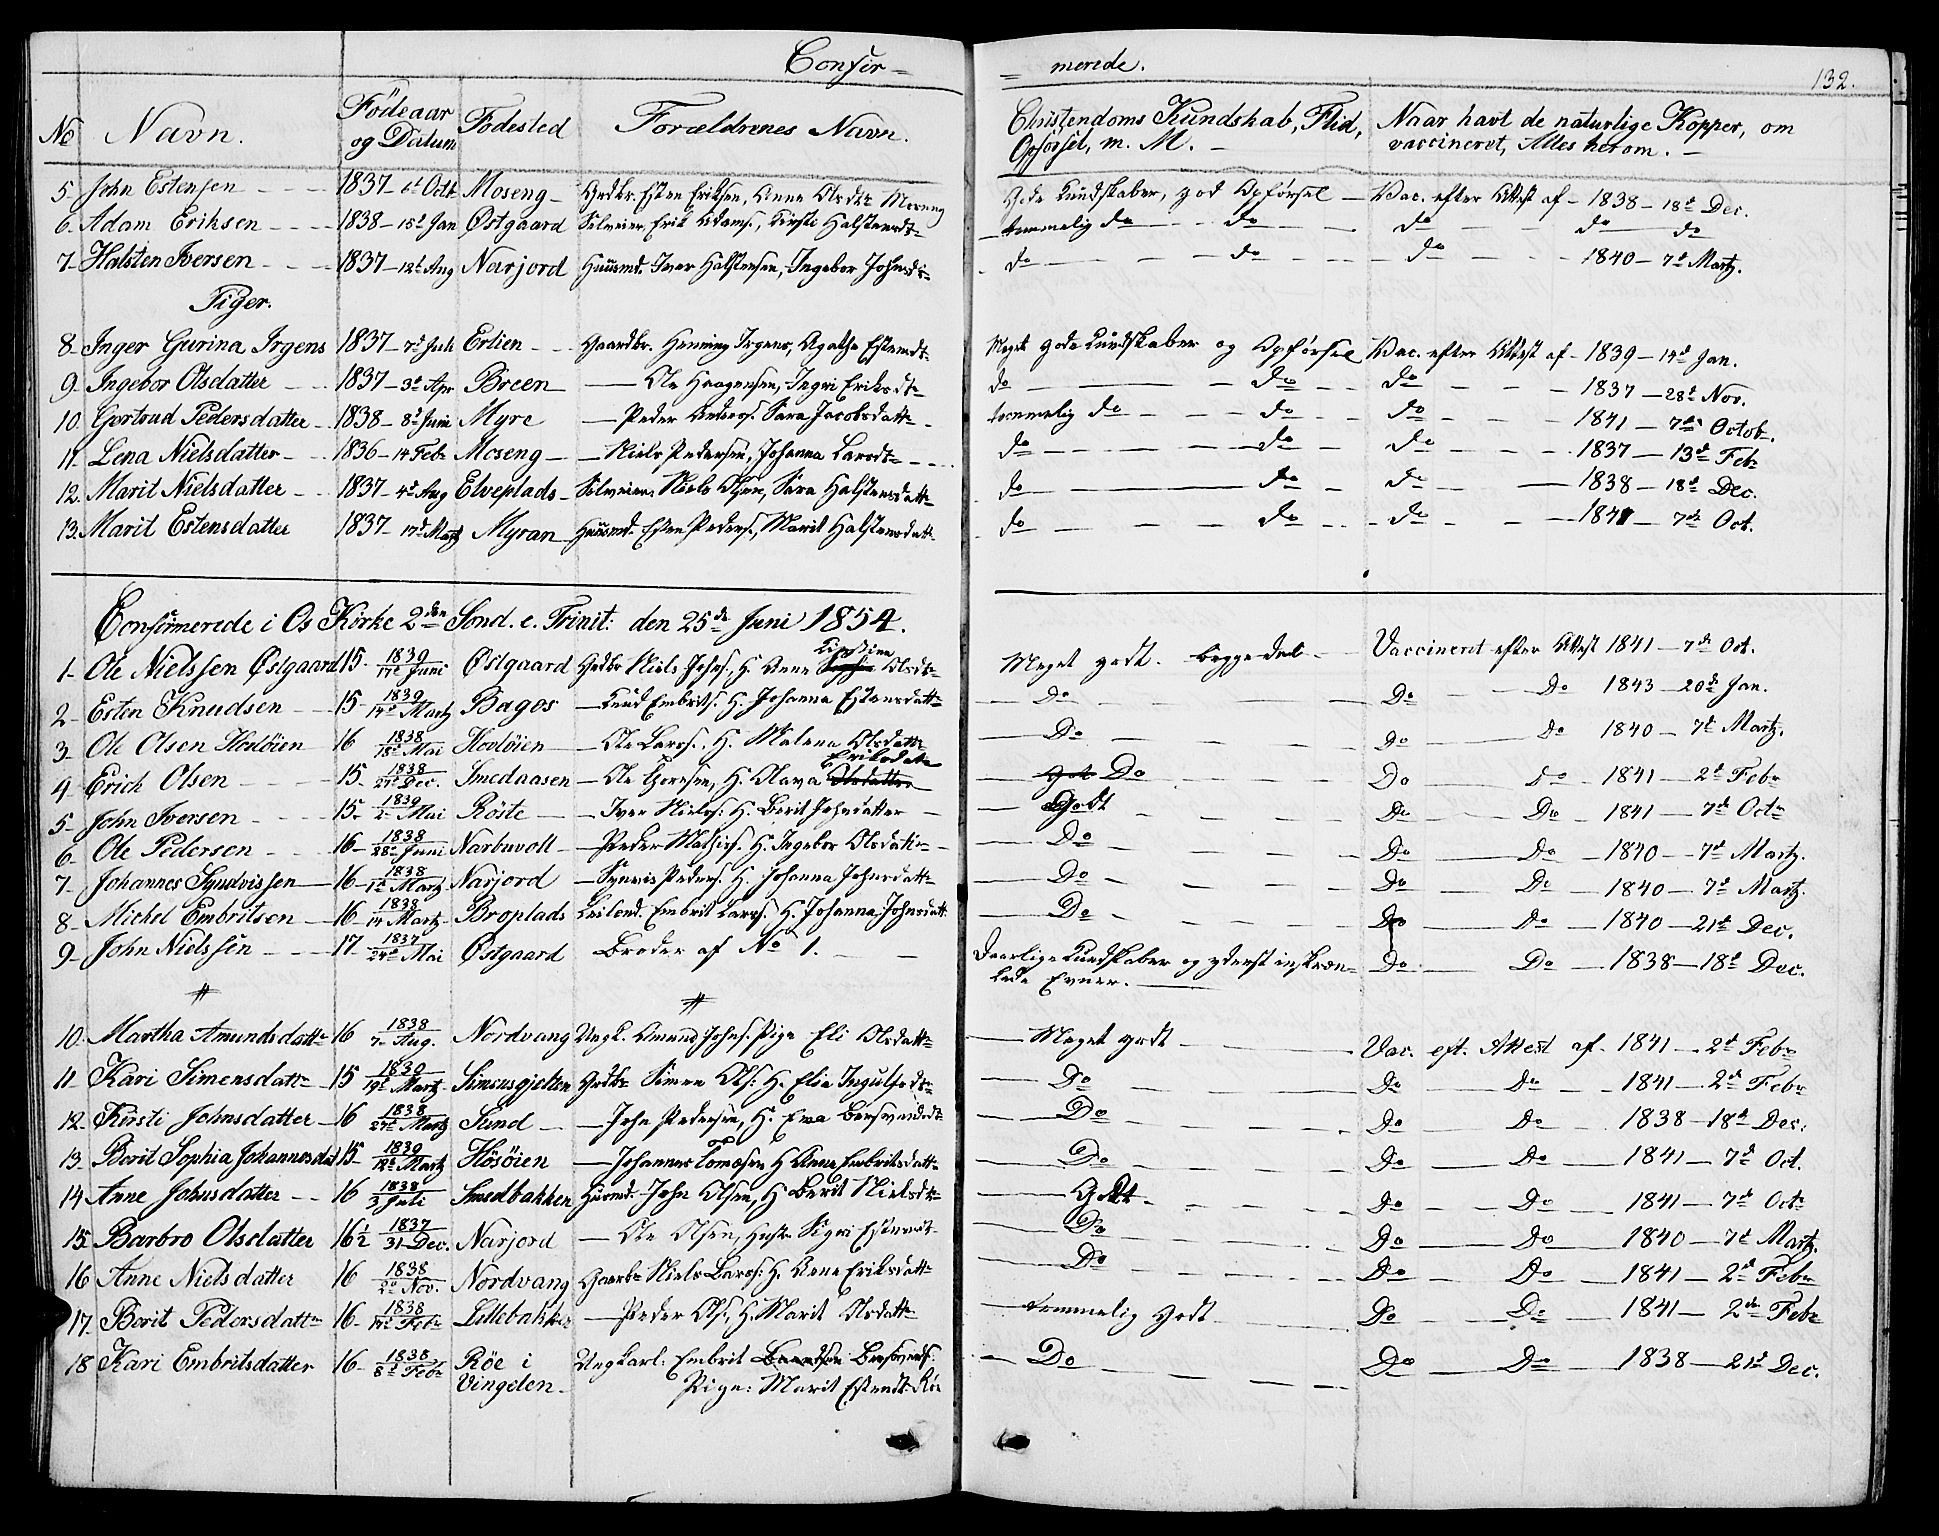 Confir= = merede.
132.
No Navn. Födeaar og Datum Fodested Forældrenes Navn. Christendoms Kundskab, Flid, Opförsel, m. M. — Naar havt de naturlige Kopper, om vaccineret, Attes herom. —
5. John Estensen 1837 — 6t Octb Moseng Grdbr. Esten Eriksen, Anne Olsdtr Moseng Gode Kundskaber, god Opførsel — Vac. efter Attest af — 1838 — 18d Dec.
6. Adam Eriksen 1838 — 15d Jan Østgaard Selveier, Erik Adams., Kirsti Halstensdt. temmelig do — do do do do
7. Halsten Iversen 1837 — 12t Aug Narjord Huusmd. Iver Halstensen, Ingebor Johnsdt. do — do do 1840 — 7d Martz.
Piger.
8. Inger Gurina Irgens 1837 — 7d Juli Erlien Gaardbr. Henning Irgens, Agathe Estensdt. Meget gode Kundskaber og Opførsel Vac. efter Attest af — 1839 — 14d Jan.
9. Ingebor Olsdatter 1837 — 3d Apr Breen — Ole Haagensen, Ingri Eriksdt. do — do do 1837 — 28d Nov.
10. Gortrud Pedersdatter 1838 — 8d Juni Myre — Peder Anders. Sara Jacobsdatt. temmelig do — do do 1841 — 7de Octob.
11. Lena Nielsdatter 1836 — 14 Febr Moseng — Niels Pedersen, Johanna Larsdt. do — do do 1837 — 13d Feb.
12. Marit Nielsdatter 1837 — 4d Aug Elveplads Selveier Niels Olsen, Sara Halstensdatt. do — do do 1838 — 18d Dec.
13. Marit Estensdatter 1837 — 17d Martz Myran Huusmd. Esten Peders., Marit Halstensdatt. do — do do 1841 — 7de Oct.
Confirmerede i Os Kirke 2den Sond. e. Trinit: den 25de Juni 1854.
1. Ole Nielssen Østgaard 15. 1839 17de Juni Østgaard Grdbr Niels Johns., H. Anne Olsdt. Meget godt. begge del Vaccineret efter Attest 1841 — 7de Oct.
2. Esten Knudsen 15 1839 14d Martz Bagos — Knud Embrits. H. Johanna Estensdatt. Do Do Do 1843 — 20de Jan.
3. Ole Olsen Hovlöien 16 1838 18d Mai Hovlöien — Ole Larss., H. Malene Olsdatt. Do Do Do 1840 — 7d Martz.
4. Erich Olsen 15. 1838 27d Dec. Smedaasen — Ole Thoresen, H. Olava Eriksdatr Do Do Do 1841 — 2d Febr
5. John Iversen 15. 1839 2 Mai Röste — Iver Niels: H. Berit Johnsdatter Godt Do Do 1841 — 7de Octr
6. Ole Pedersen 16 1838 28d Juni Narbuvoll — Peder Mathis. H. Ingebor Olsdatr Do Do Do 1840 — 7d Martz.
7. Johannes Syuvissen 16 1838 1d Martz Narjord — Syvers Peders. H. Johanna Johnsdatt. Do Do Do 1840 — 7d Martz.
8. Michel Embritsen 16 1838 14 Martz Broplads Leilend. Embrit Larss. H. Johanna Johnsdatt Do Do Do 1840 — 21d Dec.
9. John Nielssen 17. 1837 24d Mai Østgaard Broder af No 1. Daarlige Kundskaber og yderst inskrænkede Evner. Do Do 1838 — 18d Dec.
10. Martha Amundsdatt. 16 1838 7 Aug. Nordvang Ungk. Amund Johns. Pige Eli Olsdatt. Meget godt Vac. eft. Attest af — 1841 — 2d Febr
11. Kari Simensdatt. 15 1839 19d Martz Simensgjelten Grdbr Simen Ols: H. Elie Ingulfsdt. Do Do Do 1841 — 2d Febr
12. Kirsti Johnsdatter 16 1838 27d Martz Sund — John Pedersen, H. Ewa Bersvendsdt Do Do Do 1838 — 18d Dec.
13. Berit Sophia Johannesdat 15 1839 18d Martz Hösöien — Johannes Tomæsen H Anne Embritsdatt. Do Do Do 1841 — 7d Oct.
14. Anne Johnsdatter 16 1838 3 Juli Smedbakken Husmd. John Olsen, H. Berit Nielsdt. Godt Do Do 1841 — 7d Octr
15. Barbro Olsdatter 16 1/2 1837 31 Dec. Narjord — Ole Olsen, Hustr Sigri Estensdt. Do Do Do 1840 — 7d Martz.
16. Anne Nielsdatter 16 1838 2d Nov. Nordvang Gaardbr Niels Larss: H. Anne Eriksdatt. Do Do Do 1841 — 2d Febr
17. Berit Pedersdatt. 16 1838 14d Febr Lillebakken — Peder Ols. H. Marit Olsdatt. temmelig godt Do Do 1841 — 2de Febr
18. Kari Embritsdatter 16 1838 8d Febr Röe i Vingelen Ungkarl: Embrit Bersvends. Pige: Marit Estensdt. Röe Do Do Do 1838 — 21d Dec.